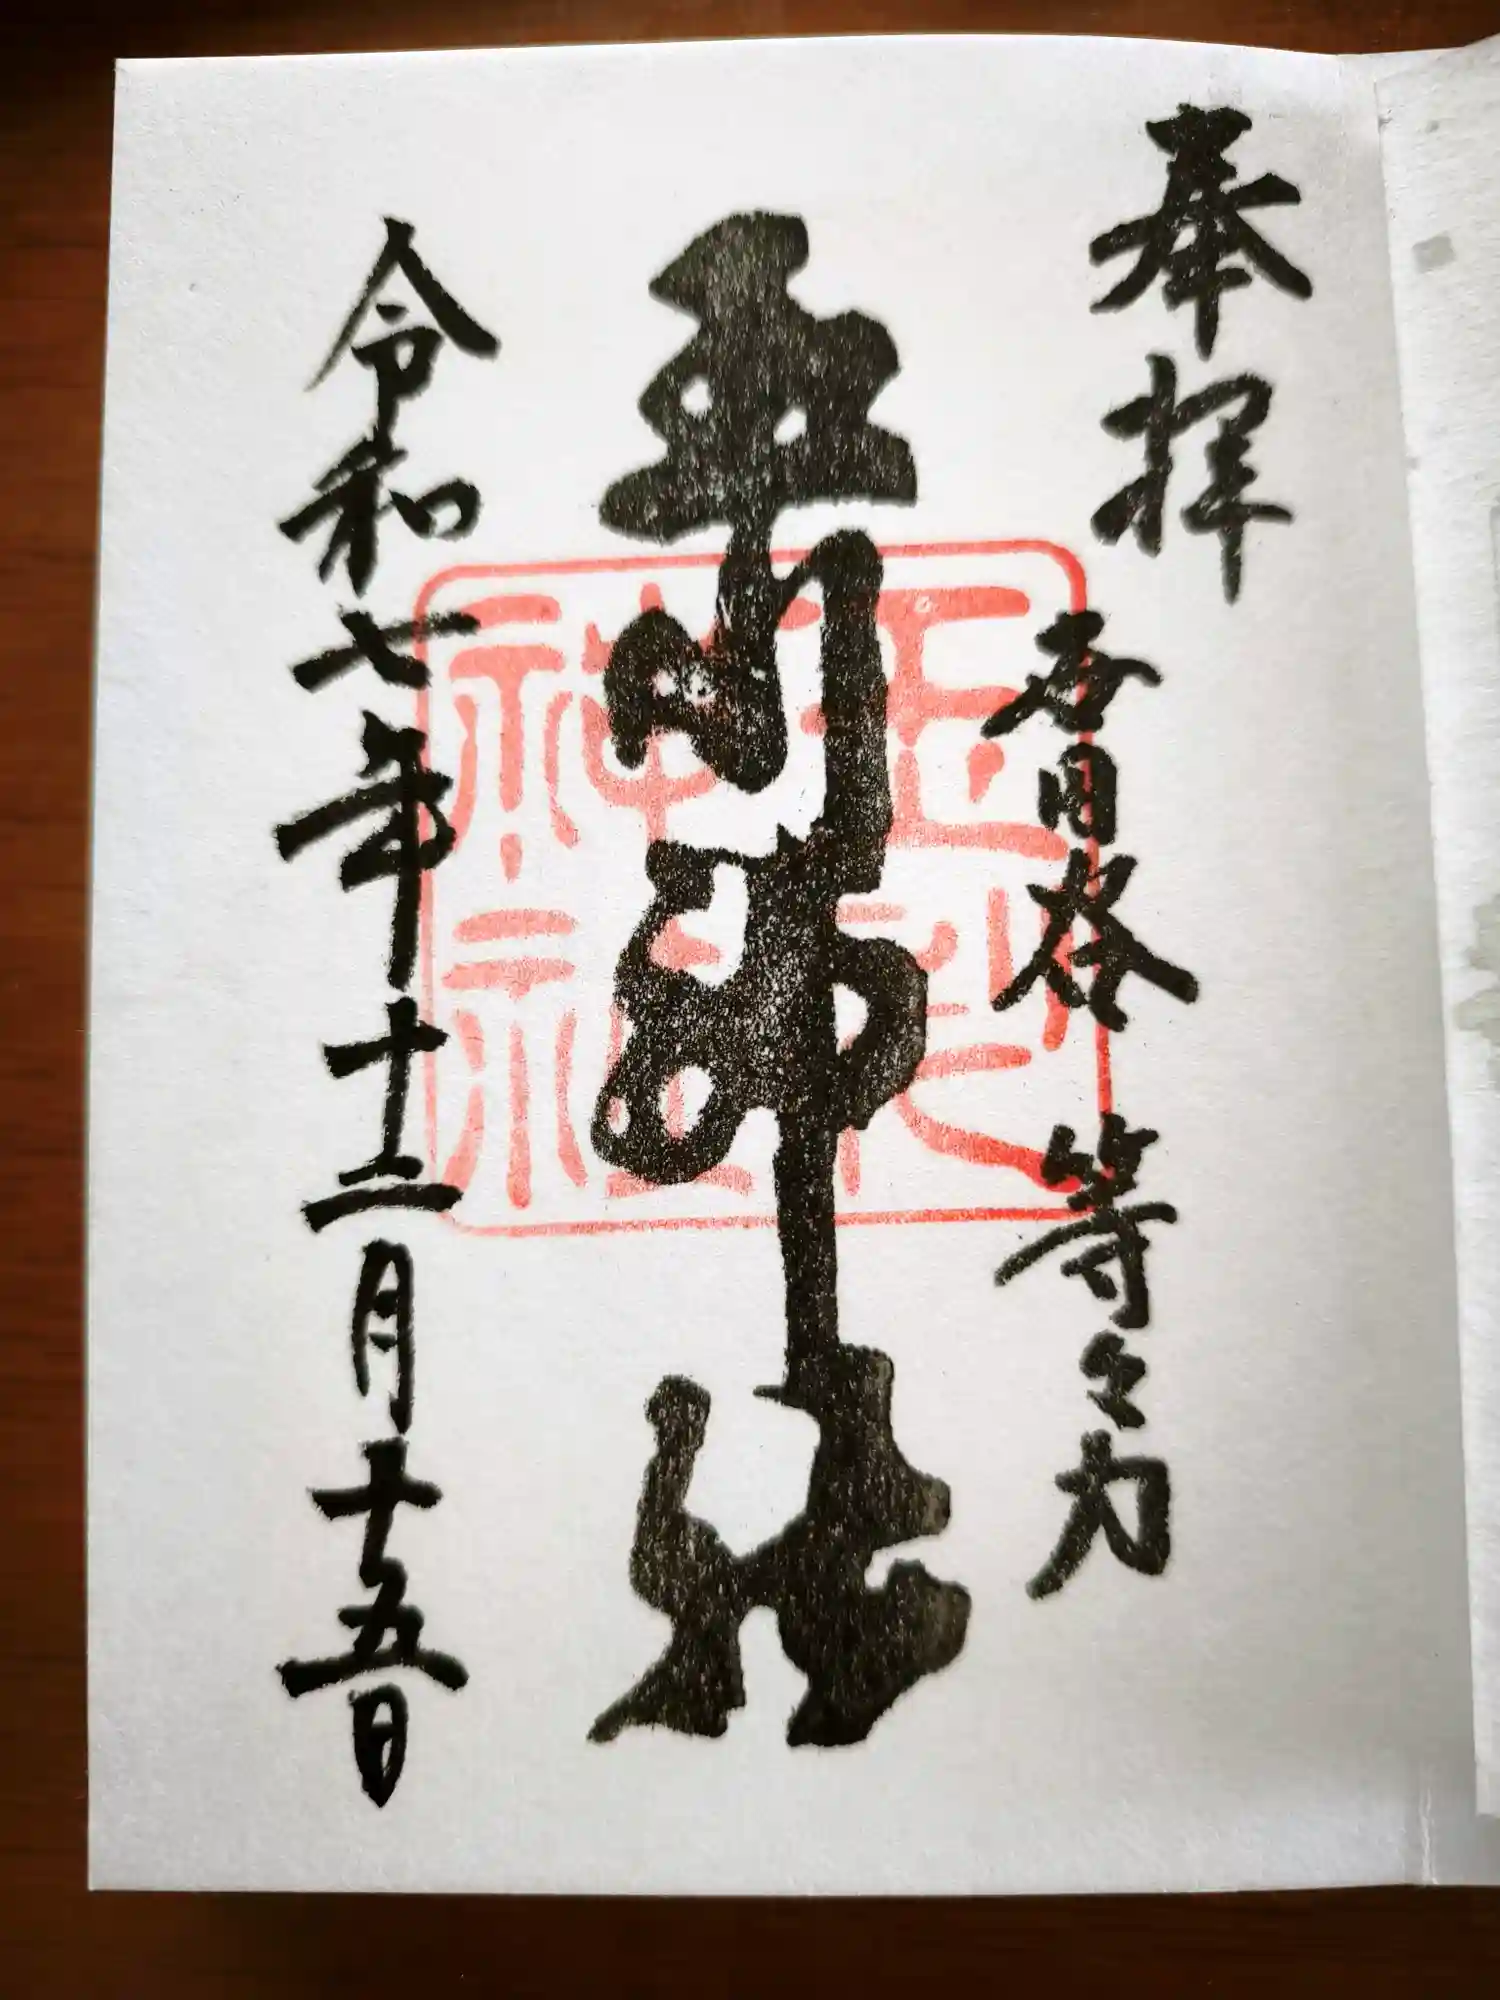 奉拝
世田谷 等々力
玉川神社
令和七年十二月十五日